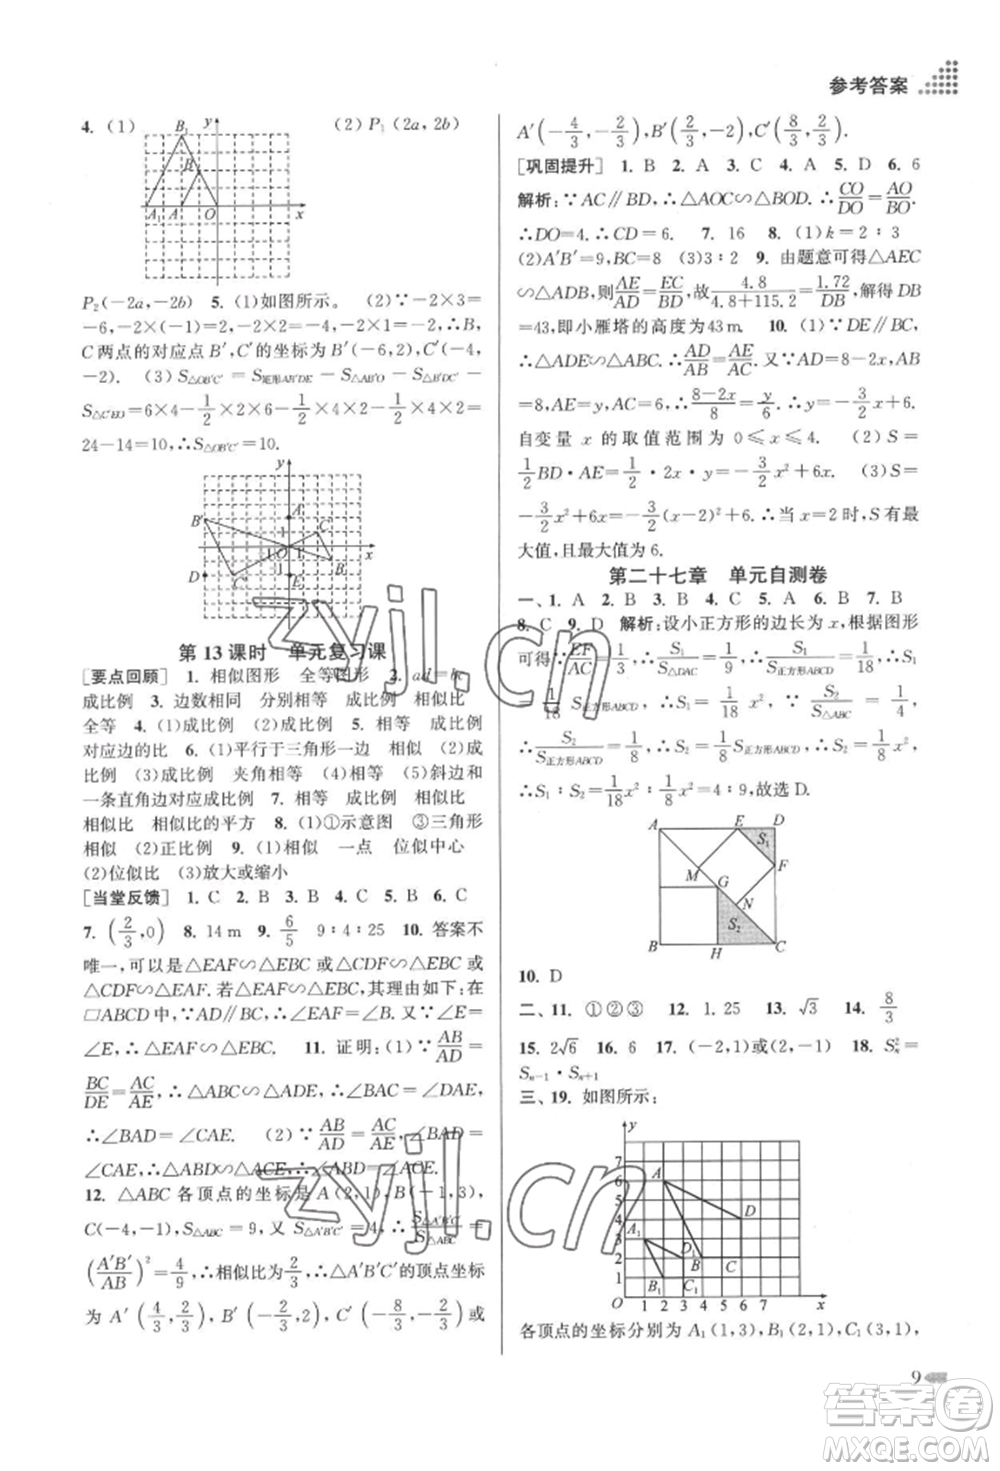 参考答案
4. (1) (2) P₁(2a, 2b)
y
B₁
B
A₁ A O x
P₂(-2a,-2b) 5. (1)如图所示。 (2)∵-2×3=
-6,-2×(-1)=2,-2×2=-4,-2×1=-2,∴B,
C两点的对应点B′,C′的坐标为B′(-6,2),C′(-4,
-2). (3)S△OB′C′=S矩形AB′DE-S△AB′O-S△B′DC′-
S△C′EO=6×4-1/2×2×6-1/2×4×2-1/2×4×2=
24-14=10,∴S△OB′C′=10.
y
A
B′ 1 C
O 1 x
B
D C′ E
第13课时 单元复习课
[要点回顾] 1. 相似图形 全等图形 2. ad=bc
成比例 3. 边数相同 分别相等 成比例 相似比
全等 4. (1)成比例 (2)成比例 5. 相等 成比例
对应边的比 6. (1)平行于三角形一边 相似 (2)成
比例 (3)成比例 夹角相等 (4)相等 (5)斜边和
一条直角边对应成比例 7. 相等 成比例 相似比
相似比 相似比的平方 8. (1)①示意图 ③三角形
相似 (2)正比例 9. (1)相似 一点 位似中心
(2)位似比 (3)放大或缩小
[当堂反馈] 1. C 2. B 3. C 4. C 5. B 6. C
7. (2/3,0) 8. 14 m 9. 6/5 9∶4∶25 10. 答案不
唯一,可能是△EAF∽△EBC或△CDF∽△EBC或
△CDF∽△EAF.若△EAF∽△EBC.理由如下:在
□ABCD中,∵AD∥BC,∴∠EAF=∠B.又∵∠E=
∠E,∴△EAF∽△EBC. 11. 证明:(1)∵AB/AD=
BC/DE=AC/AE,∴△ABC∽△ADE,∴∠BAC=∠DAE,
∴∠BAD=∠CAE. (2)∵AB/AD=AC/AE,∠BAD=
∠CAE,∴△ABD∽△ACE,∴∠ABD=∠ACE.
12. △ABC各顶点的坐标是A(2,1),B(-1,3),
C(-4,-1),S△ABC=9,又S△A′B′C′=4,∴S△A′B′C′/S△ABC=
(A′B′/AB)²=4/9,∴相似比为2/3,∴△A′B′C′的顶点坐标
为A′(4/3,2/3),B′(-2/3,2),C′(-8/3,-2/3)或
A′(-4/3,-2/3),B′(2/3,-2),C′(8/3,2/3).
[巩固提升] 1. B 2. A 3. C 4. A 5. D 6. 6
解析:∵AC∥BD,∴△AOC∽△BOD.∴CO/DO=AO/BO.
∴DO=4.∴CD=6. 7. 16 8. (1)k=2∶3
(2)A′B′=9,BC=8 (3)3∶2 9. 由题意可得△AEC
∽△ADB,则AE/AD=EC/BD,故4.8/(4.8+115.2)=1.72/DB,解得DB
=43,即小雁塔的高度为43 m. 10. (1)∵DE∥BC,
∴△ADE∽△ABC.∴AD/AB=AE/AC.又∵AD=8-2x,AB
=8,AE=y,AC=6,∴(8-2x)/8=y/6.∴y=-3/2x+6.
自变量x的取值范围为0≤x≤4. (2)S=
1/2BD·AE=1/2·2x·y=-3/2x²+6x. (3)S=
-3/2x²+6x=-3/2(x-2)²+6.∴当x=2时,S有最
大值,且最大值为6.
第二十七章 单元自测卷
一、1. A 2. B 3. B 4. C 5. D 6. A 7. B
8. C 9. D 解析:设小正方形的边长为x,根据图形
可得∵EF/AC=1/3,∴S₁/S△DAC=1/9,∴S₁/S正方形ABCD=1/18,∴S₁
=1/18S正方形ABCD,∴S₁=1/18x²,∵S₂/S△ABC=1/4,
∴S₂/S正方形ABCD=1/8,∴S₂=1/8S正方形ABCD,∴S₂=1/8x²,
∴S₁∶S₂=1/18x²∶1/8x²=4∶9,故选D.
A E D
S₁
F
M G
N
S₂
B H C
10. D
二、11. ①②③ 12. 1.25 13. √3 14. 8/3
15. 2√6 16. 6 17. (-2,1)或(2,-1) 18. Sₙ²=
Sₙ₋₁·Sₙ₊₁
三、19. 如图所示:
y
7
6 A
5
4 D
3 A₁
2 D₁ B C
1 B₁ C₁
O 1 2 3 4 5 6 7 x
各顶点的坐标分别为A₁(1,3),B₁(2,1),C₁(3,1),
9
zyjl.cn
zyjl.cn
答案圈
MXQE.COM